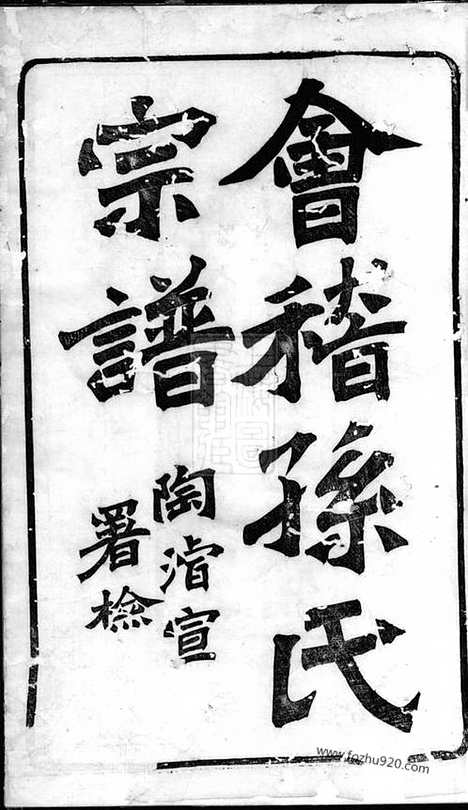 會稽孫氏
宗譜
陶濬宣
署檢
www.fozhu920.com